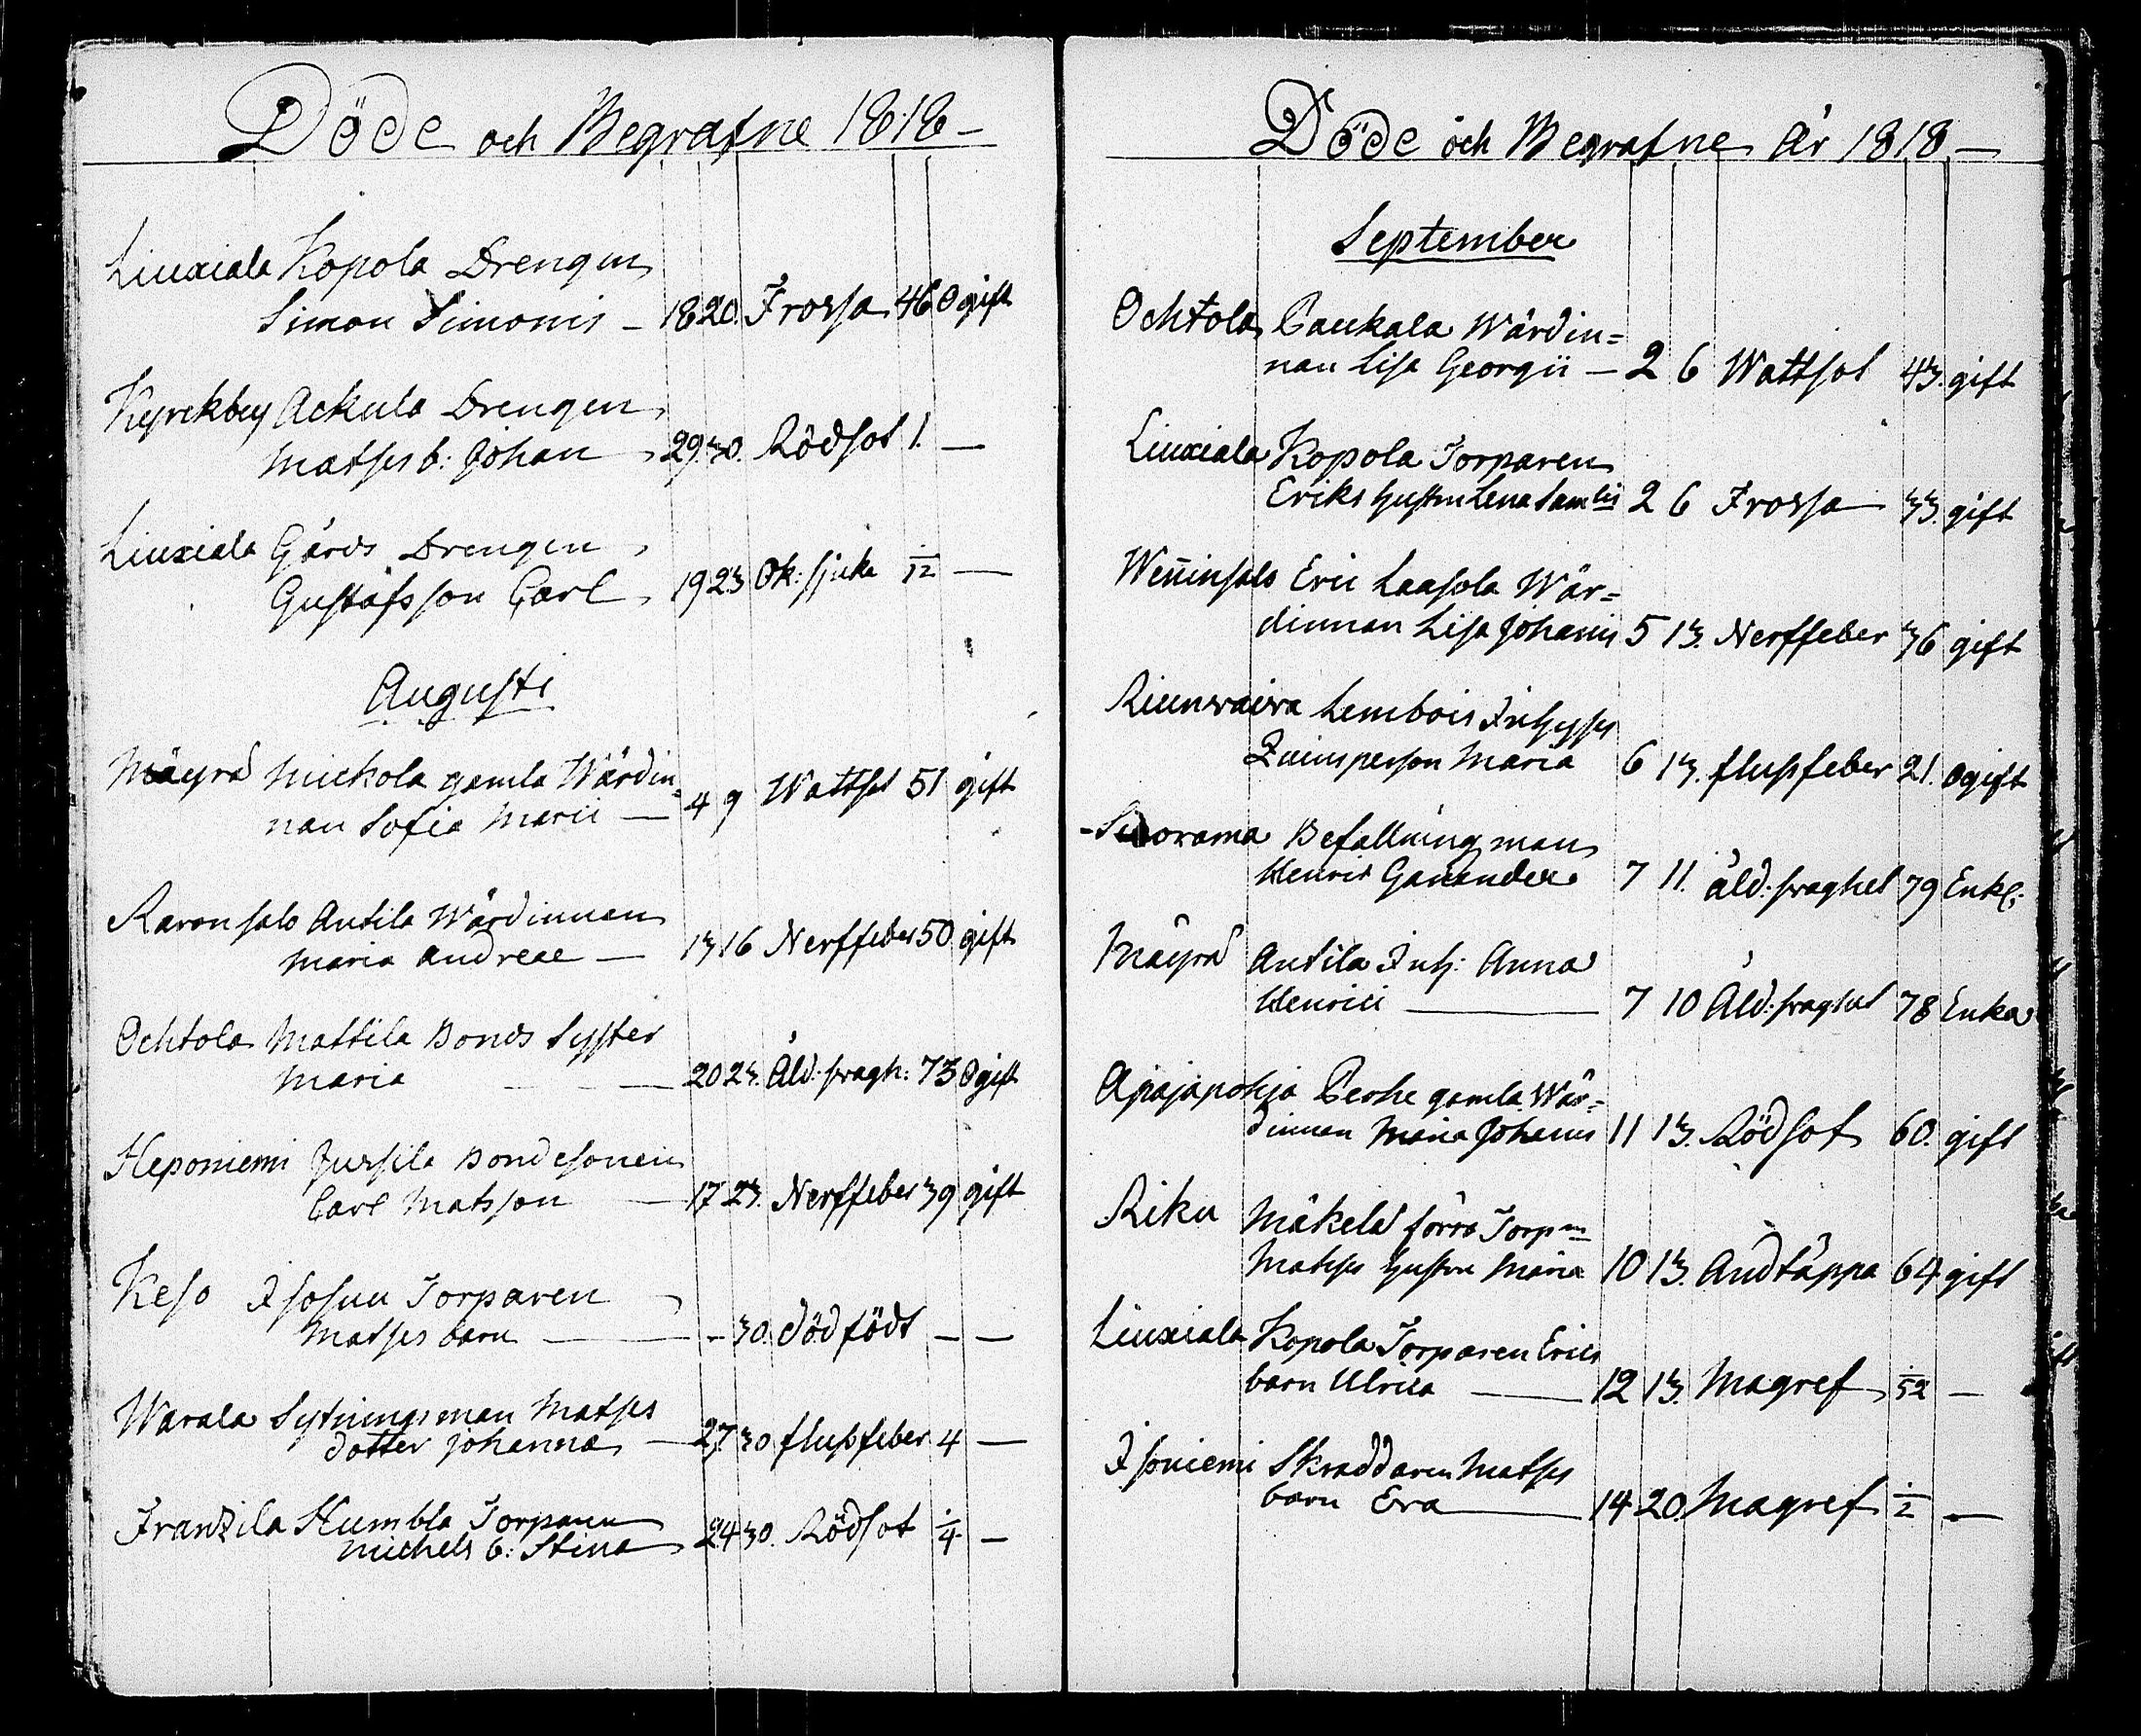 Döde och Begrafne 1818 —
Liuxiala Kopola Drengen
Simon Simonis — 18 20. Frossa 46 Ogift
Kyrckby Ackula Drengen
Matsses b: Johan 29 30. Rödsot 1. —
Liuxiala Gårds Drengen
Gustafsson Carl 19 23 Ok: sjuka 1/12 —
Augusti
Mäyrä Mickola gamla Wärdin=
nan Sofia Marci — 4 9 Wattsot 51 gift
Raronsalo Antila Wärdinnan
Maria Andreae — 13 16 Nerffeber 50 gift
Ochtola Mattila Bonds Syster
Maria — 20 23. Åld: swagh: 73 Ogift
Heponiemi Jussila Bondesonen
Carl Matsson — 17 23. Nerffeber 39 gift
Keso Isosuu Torparen
Matsses barn — - 30. dödfödt — —
Warala Sytningsman Matsses
dotter Johanna — 27 30 flussfeber 4 —
Franzila Humbla Torparen
Michels b: Stina 24 30. Rödsot 1/4 —
Döde och Begrafne År 1818 —
September
Ochtola Paukala Wärdin=
nan Lisa Georgii — 2 6 Wattsot 43. gift
Liuxiala Kopola Torparen
Eriks hustru Lena Samlis 2 6 Frossa 33. gift
Weñinsalo Eric Laasola Wär=
dinnan Lisa Johanis 5 13. Nerffeber 36 gift
Riunwaiwa Lembois Inhyses
Qwinsperson Maria 6 13. flussfeber 21. ogift
Suorama Befallningsman
Henric Ganander 7 11. åld: swaghet 79 Enkl:
Mäyrä Antila Inh: Anna
Henrici — 7 10 Åld: swaghet 78 Enka
Apajapohja Perhe gamla Wär=
dinnan Maria Johanis 11 13. Rödsot 60. gift
Riku Mäkelä förra Torpm
Matsses hustru Maria 10 13. Andtäppa 64 gift
Liuxiala Kopola Torparen Erics
barn Ulrica — 12 13. Magref 1/52 —
Isoniemi Skräddaren Matsses
barn Eva — 14 20. Magref 1/2 —